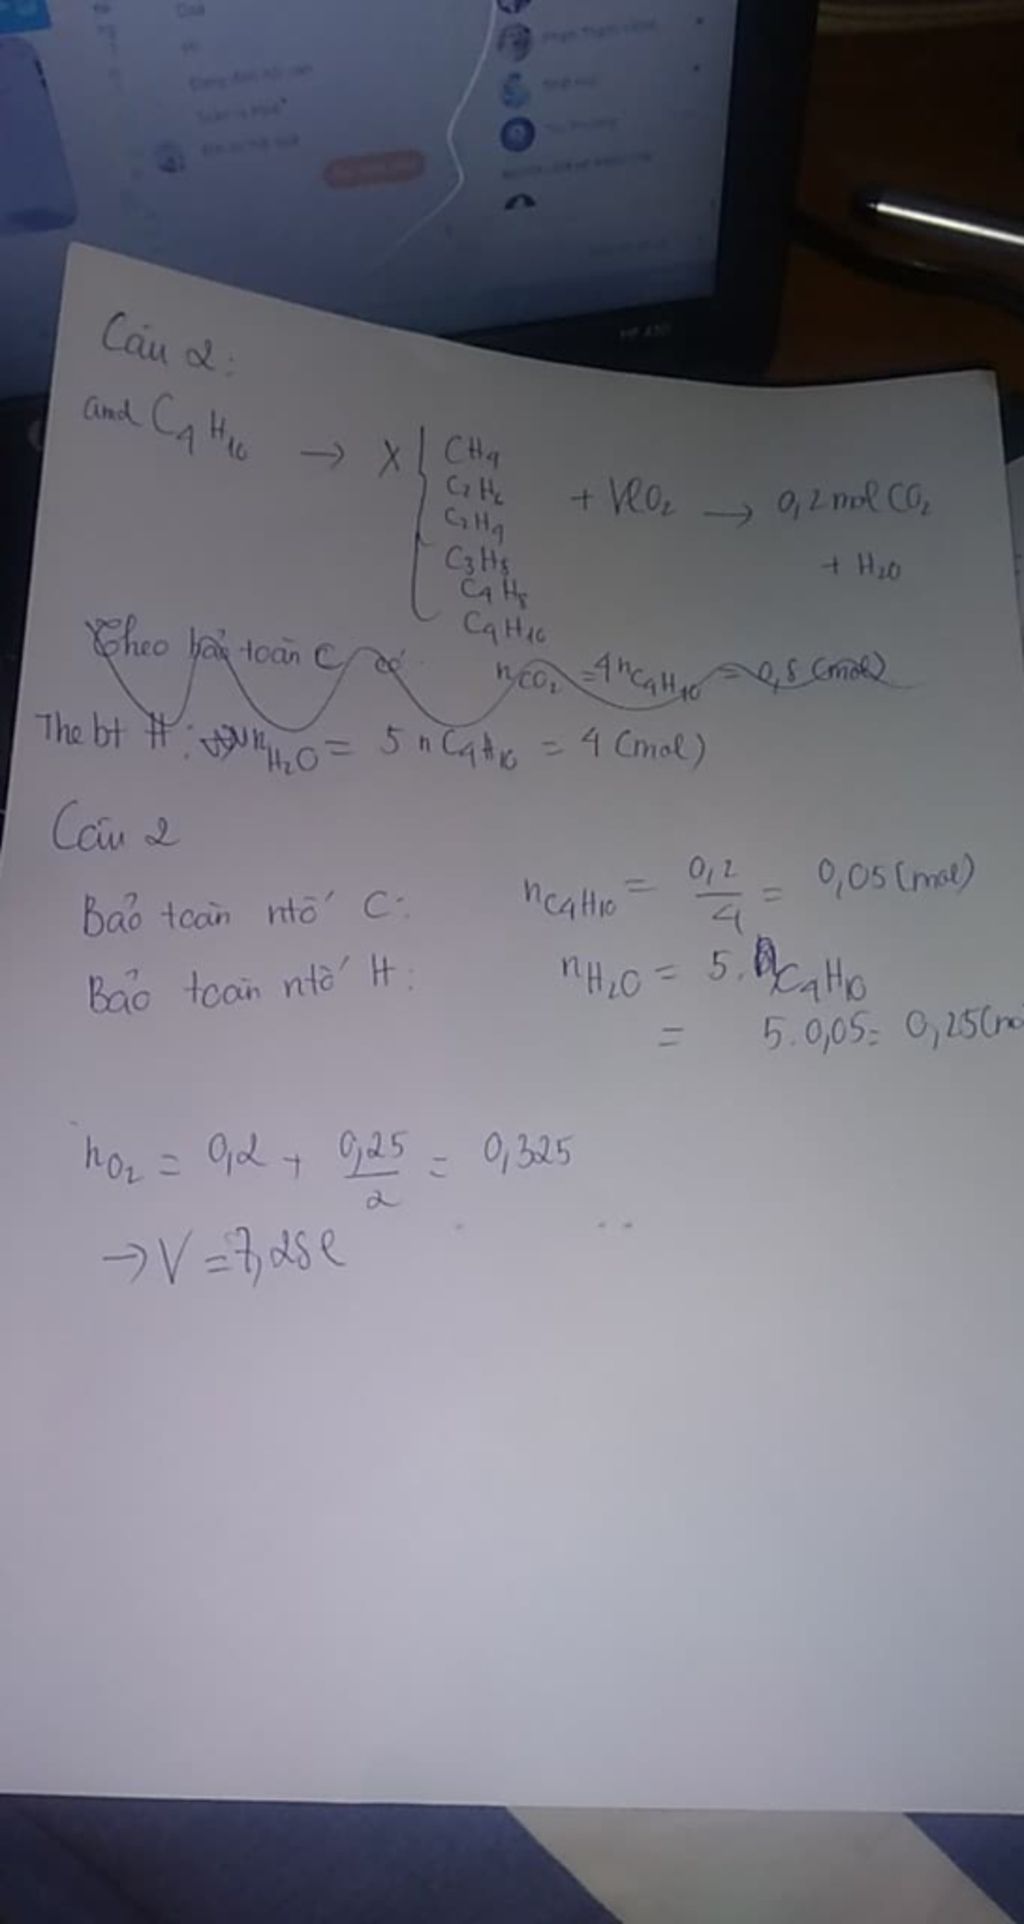 Câu 2:
C4H10 → X { CH4
C2H6
C2H4
C3H8
C4H8
C4H10
+ VlO2 → 0,2 mol CO2
+ H2O
Theo bảo toàn C có nCO2 = 4nC4H10 = 0,8 (mol)
The bt H: nH2O = 5nC4H10 = 4 (mol)
Câu 2
Bảo toàn ntố C: nC4H10 = 0,2/4 = 0,05 (mol)
Bảo toàn ntố H: nH2O = 5. C4H10
= 5.0,05 = 0,25(mo
nO2 = 0,2 + 0,25/2 = 0,325
→ V = 7,28l